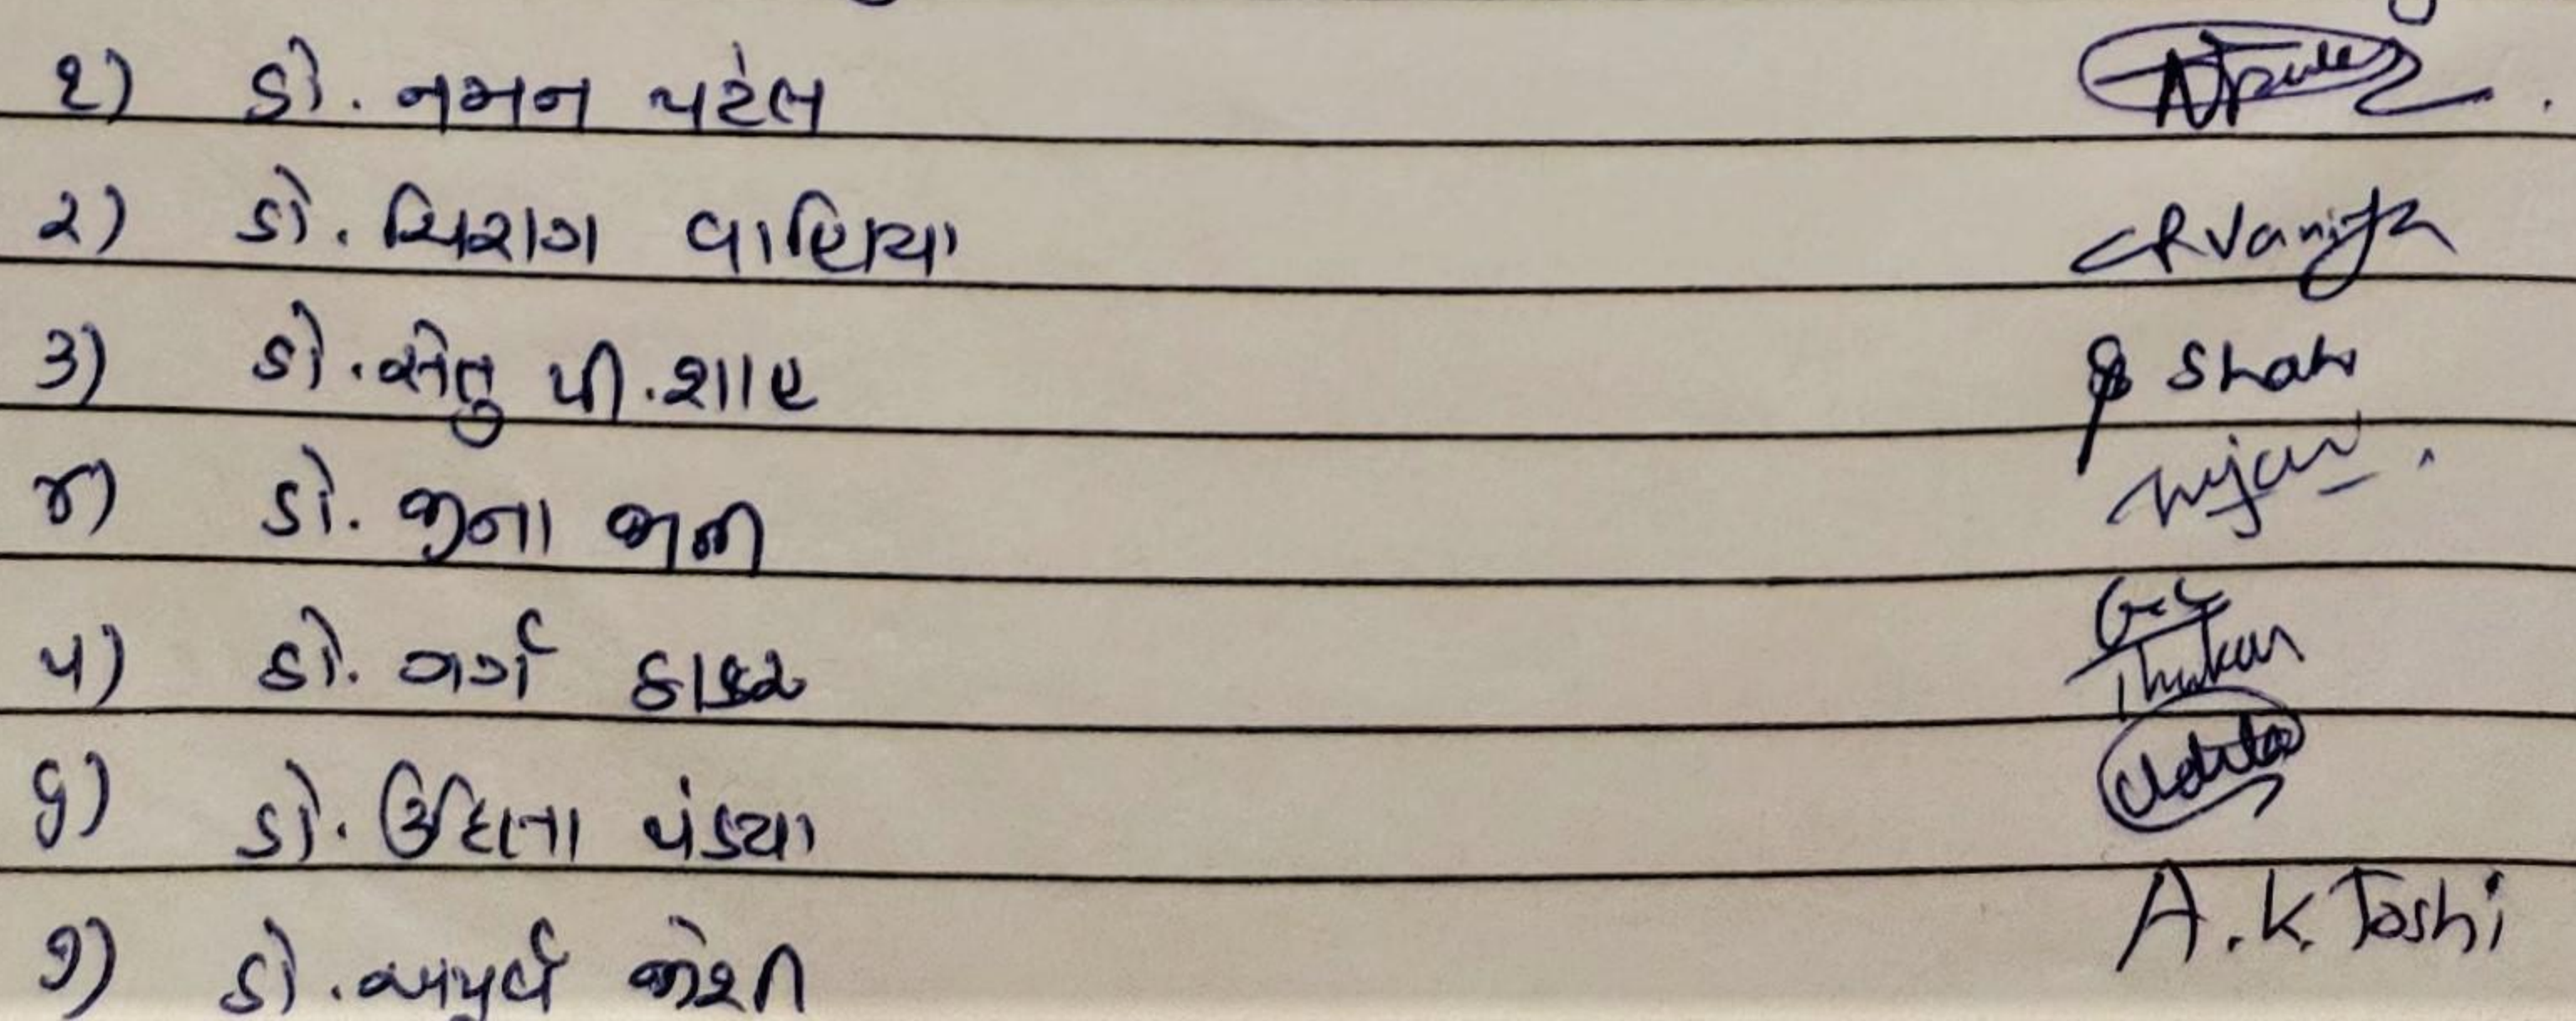 ૧) ડો. નમન પટેલ
૨) ડો. ચિરાગ વાણિયા CRVaniya
૩) ડો. સેતુ પી. શાહ S Shah
૪) ડો. જીના જાની
૫) ડો. ગર્ગ ઠાકર Thakar
૬) ડો. ઉદિતા પંડ્યા Udita
૭) ડો. અપુર્વ જોશી A.K. Joshi